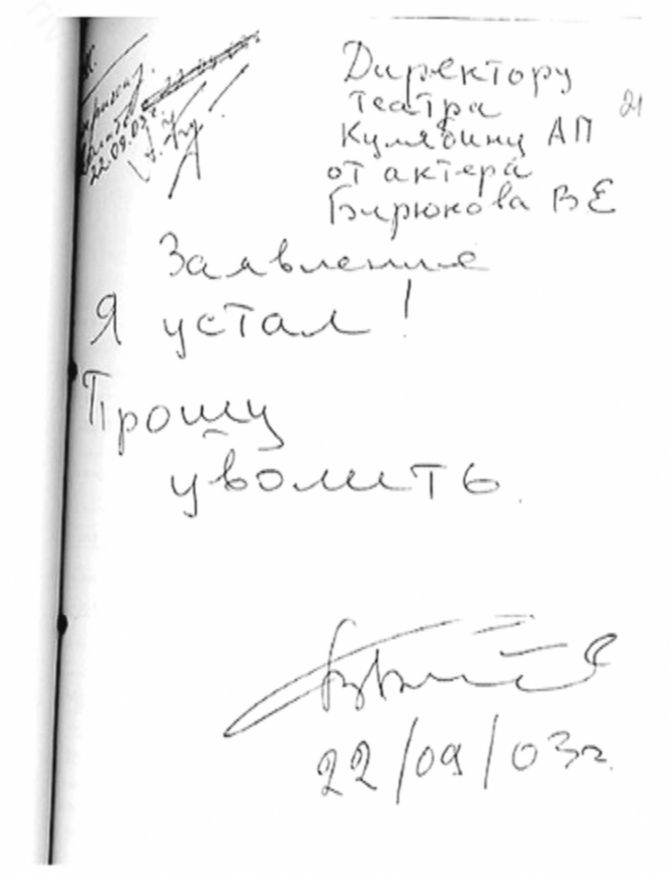 22.09.03г.
Директору
театра
Кулябину АП
от актера
Бирюкова ВЕ
21
Заявление
Я устал!
Прошу
уволить.
22/09/03г.